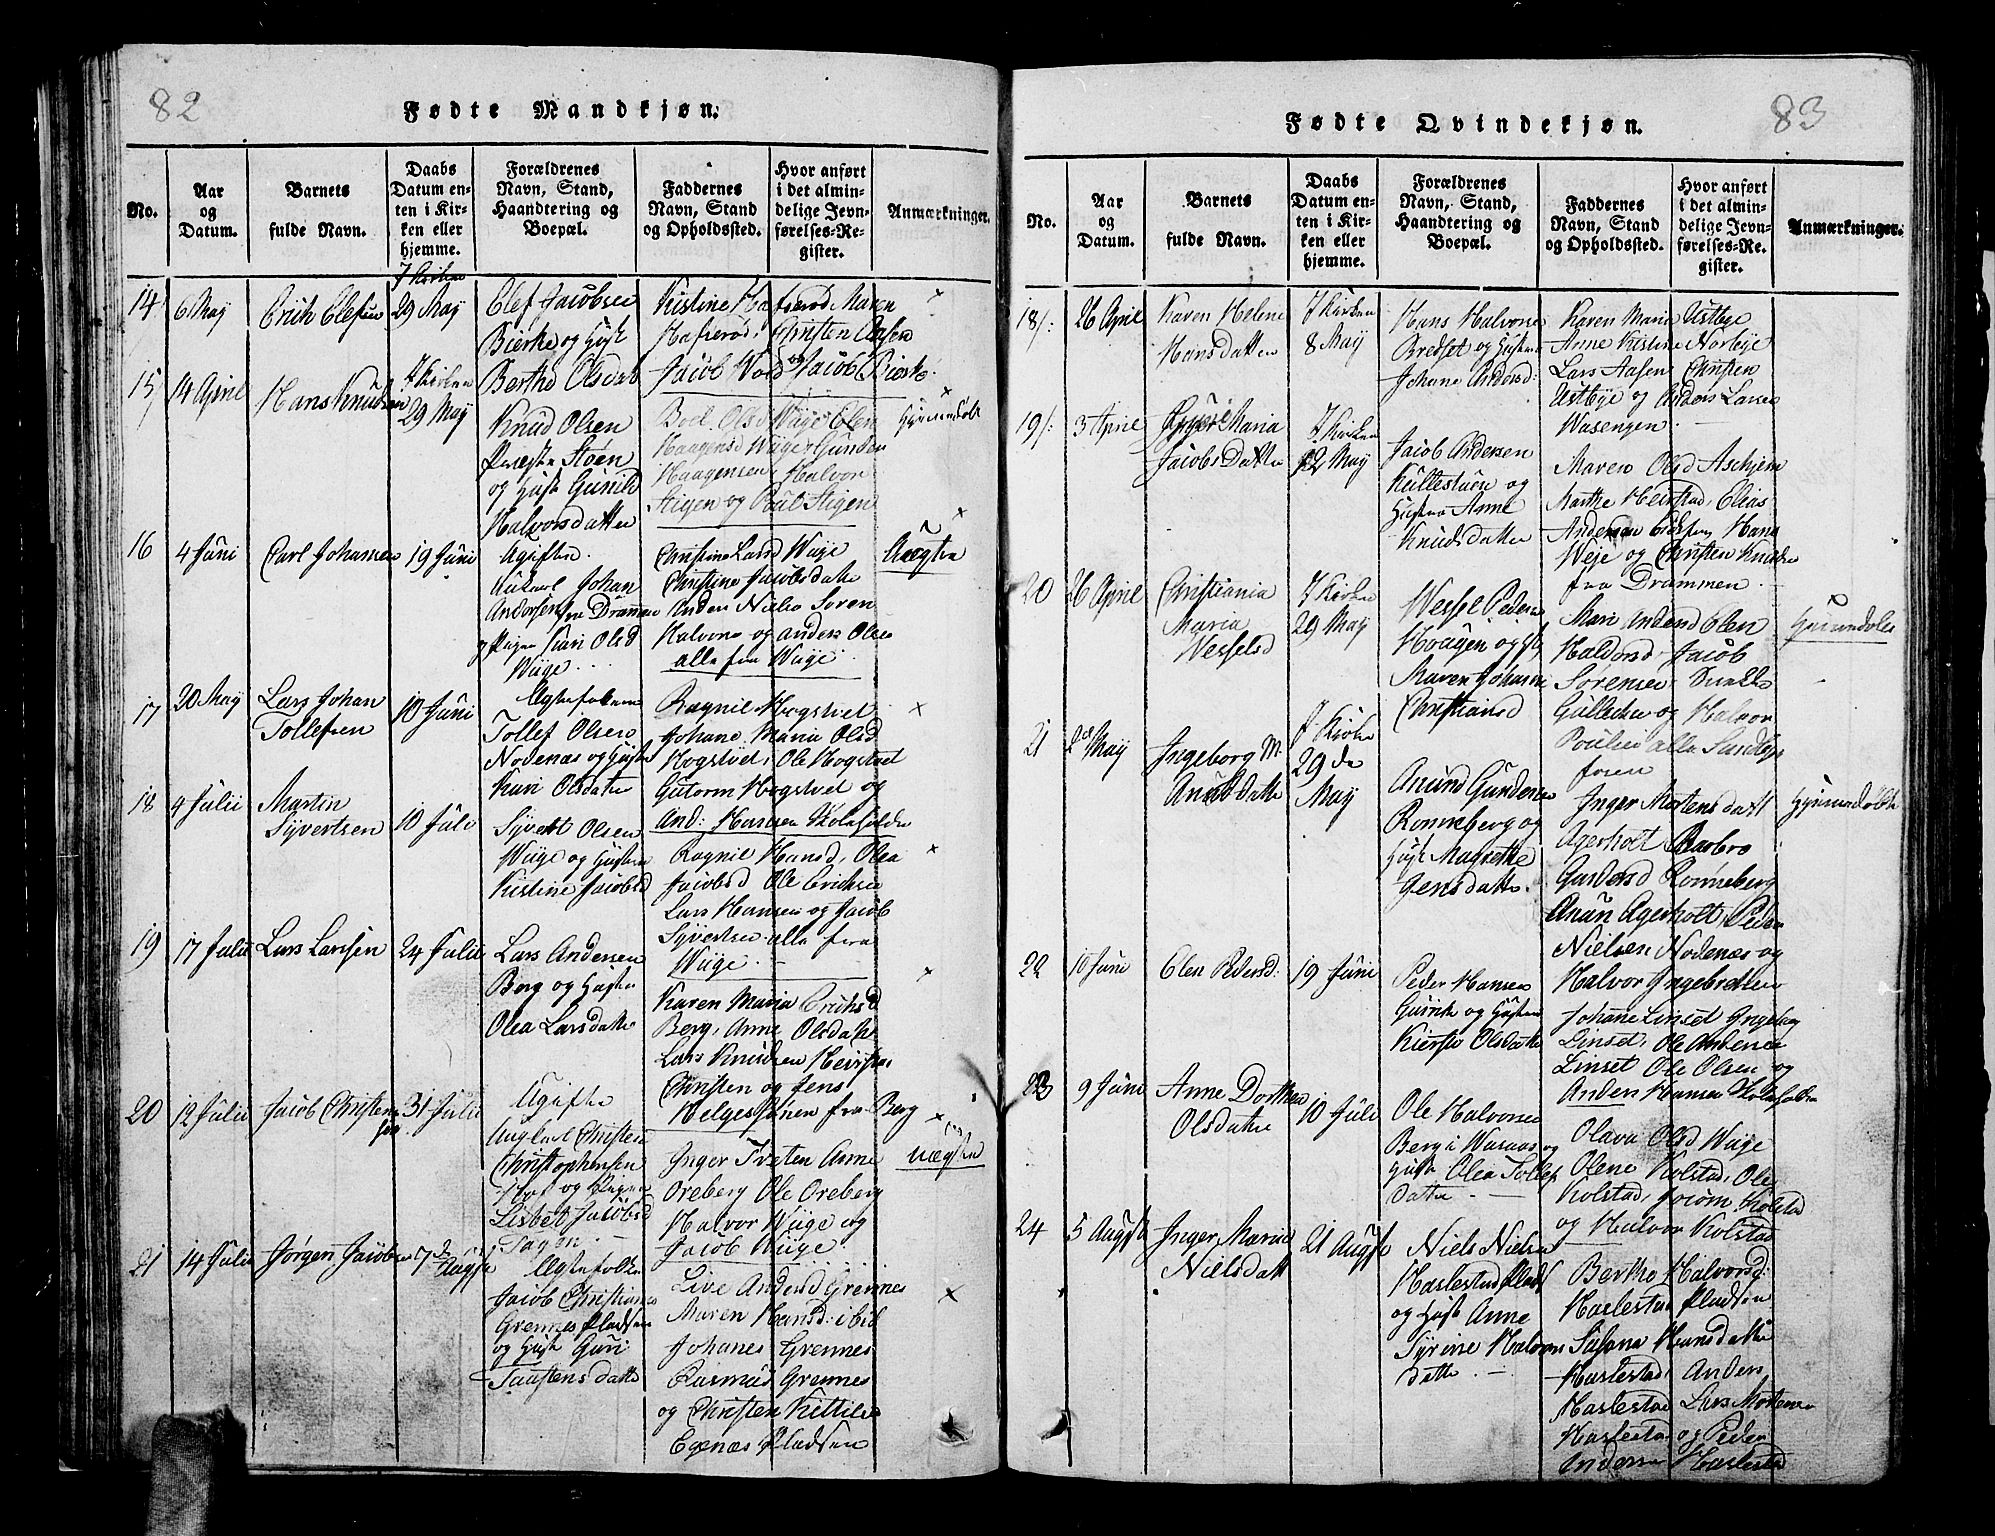 82
Fødte Mandkjøn.
No.
Aar
og
Datum.
Barnets
fulde Navn.
Daabs
Datum en-
ten i Kir-
ken eller
hjemme.
Forældrenes
Navn, Stand,
Haandtering og
Boepæl.
Faddernes
Navn, Stand
og Opholdssted.
Hvor anført
i det almin-
delige Jevn-
førelses-Re-
gister.
Anmærkninger.
14
6 May
Erich Olesen
7 Kirken
29 May
Olef Jacobsen
Bierke og Hust
Berthe Olsdat
Kistine Hafserod, Maren
Hafserod, Christen Aasen
Jacob Wold og Jacob Bierke
15
14 April
Hans Knudsen
7 Kirken
29 May
Knud Olsen
Præste Støen
og Hust Gunild
Halvorsdatter
Boel Olsd Wiige Elen
Haagensd Wiige Gunder
Haagensen, Halvor
Stigen og Poul Stigen
16
4 Juni
Carl Johansen
19 Juni
Ugifte
Johan
Andersen fra Dramen
og Pigen Kari Olsd
Wiige
Christine Larsd Wiige
Christine Jacobsdatte
Anders Niels Soren
Halvors og Anders Olsen
alle fra Wiige
Uægte
17
20 May
Lars Johan
Tollefsen
10 Juni
Ægtefolkene
Tollef Olsen
Nodenæs og Hustru
Kari Olsdatter
Ragnil Hogstvet
Johane Maria Olsd
Hogstvet, Ole Hogstved
Gutorm Hogstvet og
And: Hansen Skoleholder
18
4 Julii
Martin
Syvertsen
10 Juli
Syvert Olsen
Wiige og Hustru
Kistine Jacobsd
Ragnil Hansd, Olea
Jacobsd Ole Erichsen
Lars Hansen og Jacob
Syvertsen alle fra
Wiige
19
17 Julii
Lars Larssen
24 Julii
Lars Andersen
Berg og Hustru
Olea Larsdatter
Karen Maria Erichsd
Berg, Anne Olsdatte
Lars Knudsen
Christen og Jens
Helgestønen fra Berg
20
12 Julii
Jacob Christens
sen
31 Julii
Ugifte
Ungkarl Christen
Christophersen
og Pigen
Lisbet Jacobsd
Inger Tveten Anne
Oreberg Ole Oreberg
Halvor Wiige og
Jacob Wiige
Uægte
21
14 Julii
Jørgen Jacobsen
7de Augst
Ægtefolkene
Jacob Christians
Grennes Pladsen
og Hust Guri
Taastensdatte
Live Andersd Grennes
Maren Hansd: ibid
Johanes Grennes
Rasmus Grennes
og Christen Kittilse
Egenæs Pladsen
83
Fødte Qvindekjøn.
No.
Aar
og
Datum.
Barnets
fulde Navn.
Daabs
Datum en-
ten i Kir-
ken eller
hjemme.
Forældrenes
Navn, Stand,
Haandtering og
Boepæl.
Faddernes
Navn, Stand
og Opholdssted.
Hvor anført
i det almin-
delige Jevn-
førelses-Re-
gister.
Anmærkninger.
18/:
26 April
Karen Helene
Hansdatter
7 Kirken
8 May
Hans Halvorse
Bredset og Hustru
Johane Andersd:
Karen Maria Ustbye
Anne Kistine Norbye
Lars Aasen Christen
Ustbye og Anders Larsen
Wasengen
19/:
3 April
Maria
Jacobs Datter
7 Kirken
May
Jacob Andersen
Kullestuen og
Hustru Anne
Knudsdatter
Maren Olsd Aschjem
Marthe Heirstad, Elias
Andersen Hans
Weje og Christen Knudsen
fra Drammen
20
26 April
Christiania
Maria
Wesselsd
7 Kirken
29 May
Wessel Peders
Hougen og H
Maren Johanne
Christiansd
Mari Andersd Elen
Haldorsd Jacob
Sorensen
Gulleschu og Halvor
Poulsen alle Sand
foren
21
28 May
Ingeborg M.
Anundsdatter
7 Kirken
29 de
May
Anund Gundersen
Ronneberg og
Hust Magrethe
Gensdatter
Inger Mortensdatt
Agerholt Barbro
Gundersd Ronneberg
Anun Agerholt, Peder
Nielsen Nodenæs og
Halvor Ingebretsen
22
10 Juni
Elen Pedersd:
19 Juni
Peder Hansen
og Hustru
Kiersto Olsdatte
Johane Linset Ingeborg
Linset, Ole Andersen
Linset Ole Olsen og
Anders Hansen Skoleholder
23
9 Juni
Anne Dorthea
Olsdatter
10 Juli
Ole Halvorsen
Berg i Waraas og
Hust Olea Tollefs
datter
Olava Olsd Wiige
Olene Kolstad, Ole
Kolstad, Kolstad
og Halvor Kolstad
24
5 Augst
Inger Maria
Nielsdatt
21 Augst
Niels Nielsen
Haslestad Plads
og Hust Anne
Syrine Halvors
datte
Berthe Halvorsd:
Haslestad Pladsen
Susana Hansdatter
Haslestad, Anders
Haslestad Lars Mortensen
Haslestad og Peder
Andersen Haslestad